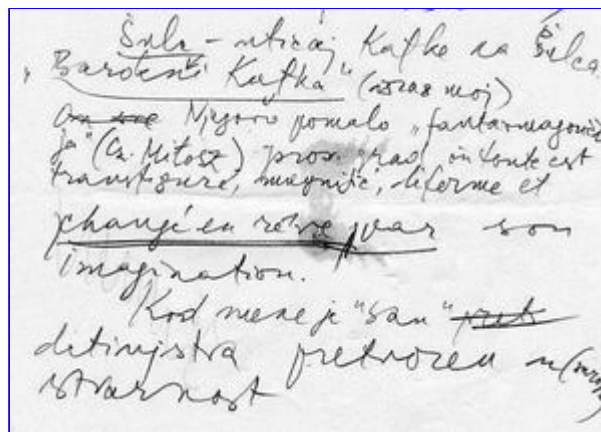 Šulc - uticaj Kafke na Šulca
"Barokni Kafka" (izraz moj)
Njegov pomalo "fantazmagorič
ja" (Cz. Miłosz) grad, où tout est
transfiguré, magnifié, déformé et
changé en rêve par son
imagination.
Kod mene je "san"
detinjstva pretvoren u
stvarnost